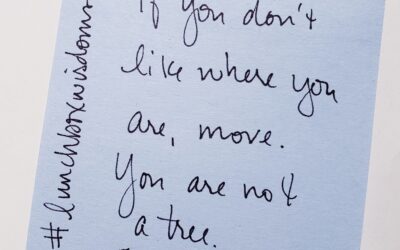 If you don't
like where you
are, move.
You are not
a tree.
#lunchboxwisdoms